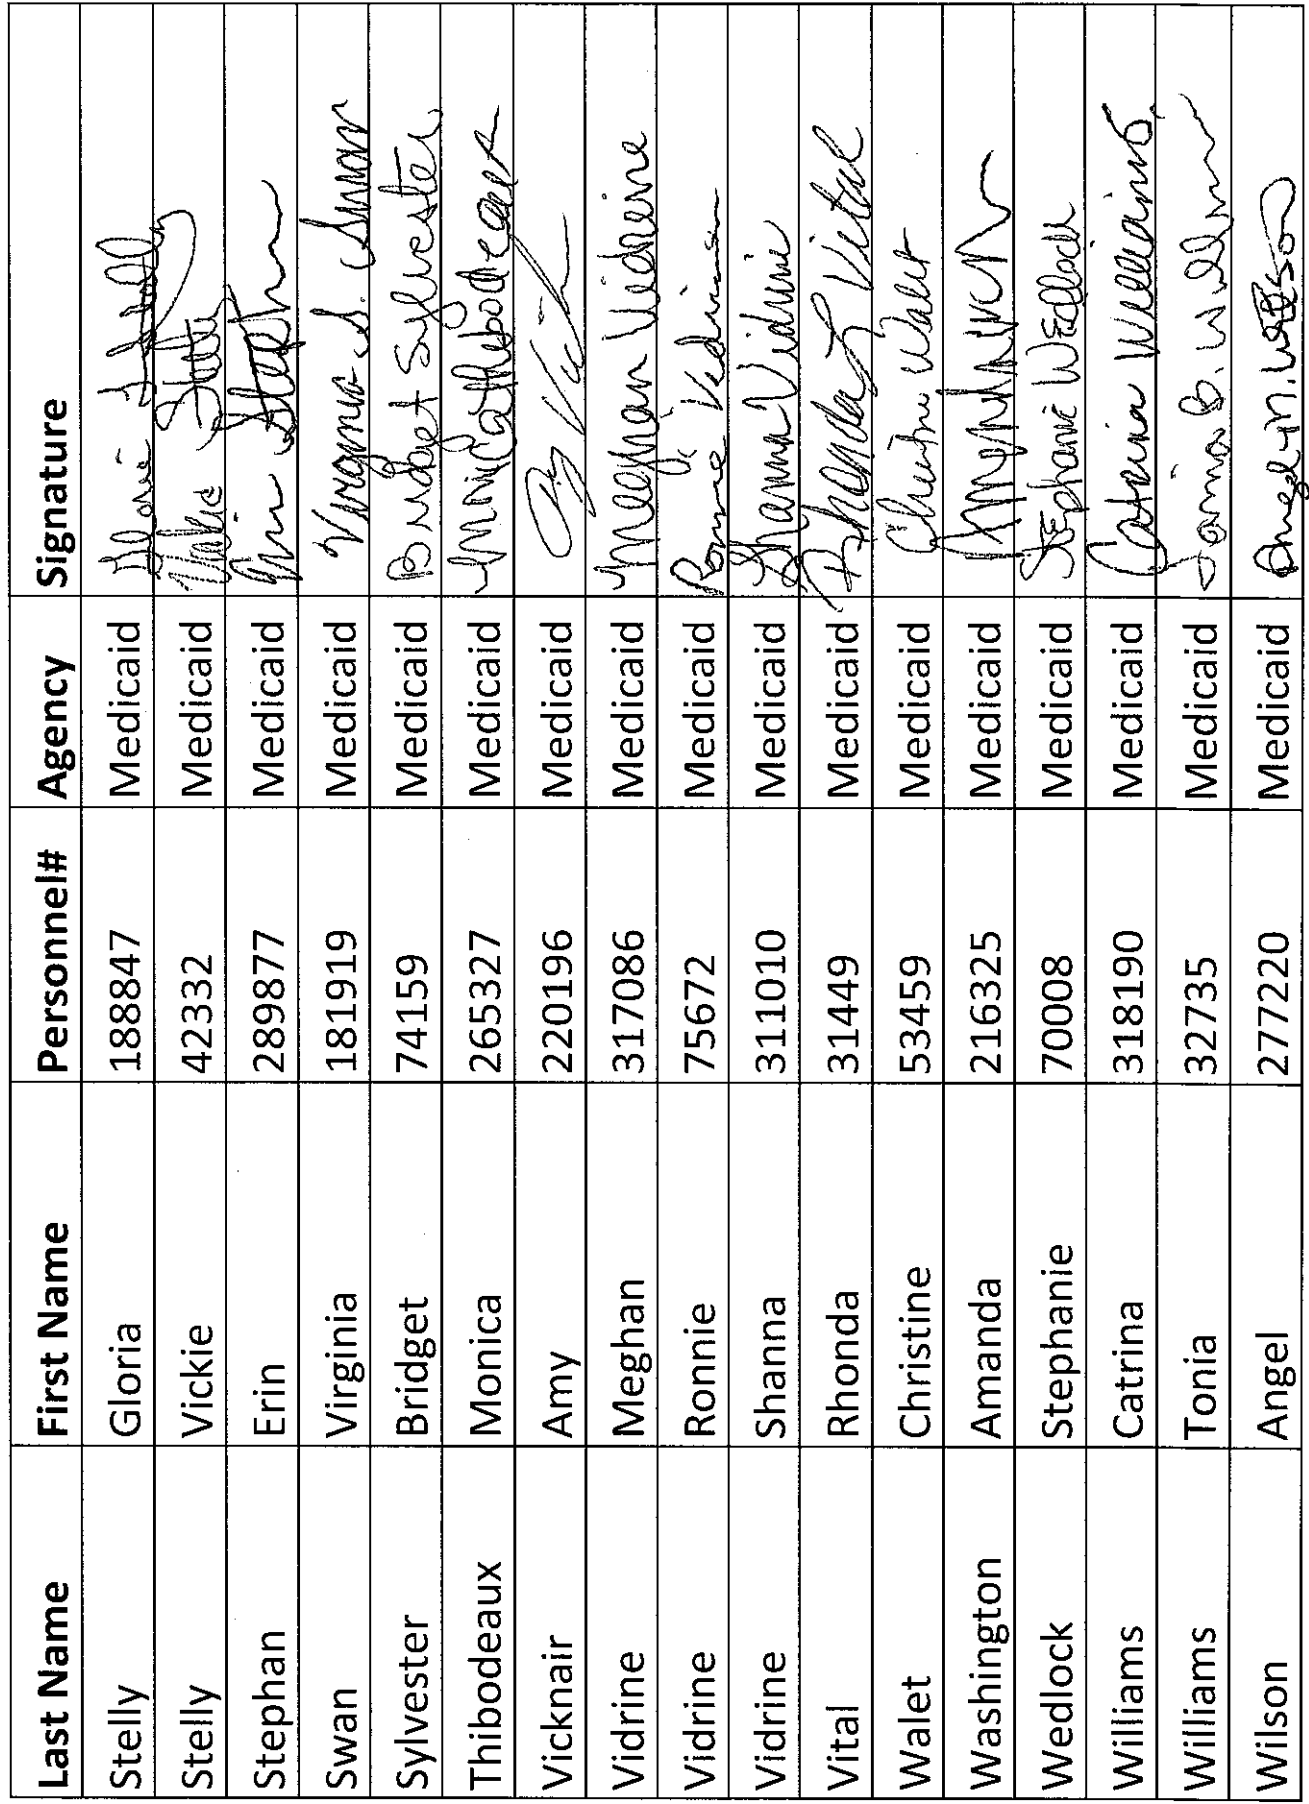 Last Name First Name Personnel# Agency Signature
Stelly Gloria 188847 Medicaid
Stelly Vickie 42332 Medicaid
Stephan Erin 289877 Medicaid
Swan Virginia 181919 Medicaid Virginia S. Swan
Sylvester Bridget 74159 Medicaid Bridget Sylvester
Thibodeaux Monica 265327 Medicaid Monica Thibodeaux
Vicknair Amy 220196 Medicaid
Vidrine Meghan 317086 Medicaid Meghan Vidrine
Vidrine Ronnie 75672 Medicaid Ronnie Vidrine
Vidrine Shanna 311010 Medicaid Shanna Vidrine
Vital Rhonda 31449 Medicaid Rhonda L Vital
Walet Christine 53459 Medicaid Christine Walet
Washington Amanda 216325 Medicaid
Wedlock Stephanie 70008 Medicaid Stephanie Wedlock
Williams Catrina 318190 Medicaid Catrina Williams
Williams Tonia 32735 Medicaid Tonia B. Williams
Wilson Angel 277220 Medicaid Angel M. Wilson